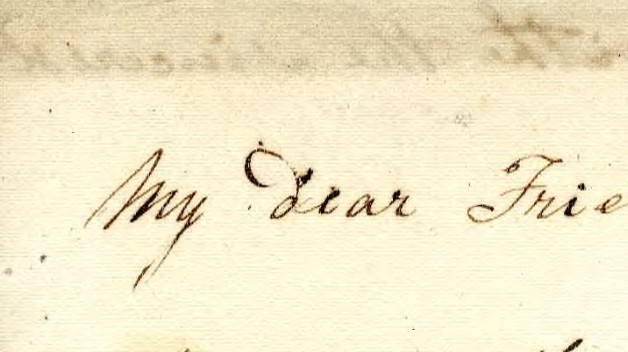 My dear Frie